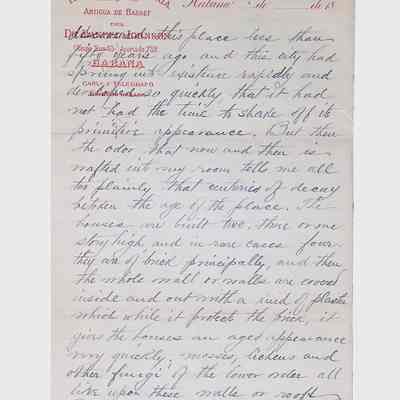 Habana de 18
ANTIGUA DE BARSET
POR
HABANA
CABLE Y TELEGRAFO
discovered this place less than
fifty years ago and this city had
sprung into existence rapidly and
developed so quickly, that it had
not had the time to shake off its
primitive appearance. But then
the odor that now and then is
wafted into my room tells me all
too plainly that centuries of decay
betoken the age of the place. The
houses are built two, three or one
story high, and in rare cases four,
they are of brick principally, and then
the whole wall or walls are covered
inside and out with a kind of plaster
which while it protects the brick, it
gives the houses an aged appearance
very quickly; mosses, lichens and
other fungi of the lower order all
live upon these walls or roofs